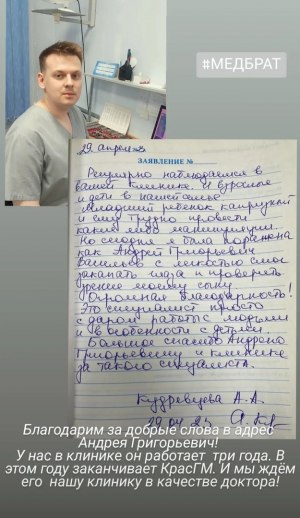 #МЕДБРАТ
29 апреля
ЗАЯВЛЕНИЕ №
Регулярно наблюдаемся в
вашей клинике. И взрослые
и дети в нашей семье
Младший ребенок капризный
и ему трудно провести
какие либо манипуляции.
Но сегодня я была поражена
как Андрей Григорьевич
с легкостью смог
закапать глаза и проверить
зрение моему сыну
Огромная благодарность!
Это специалист просто
с даром работы с людьми
и в особенности с детьми.
Большое спасибо Андрею
Григорьевичу и клинике
за такого специалиста.
Кудревцева А.А.
29.04.23
Благодарим за добрые слова в адрес
Андрея Григорьевича!
У нас в клинике он работает три года. В
этом году заканчивает КрасГМ. И мы ждём
его нашу клинику в качестве доктора!